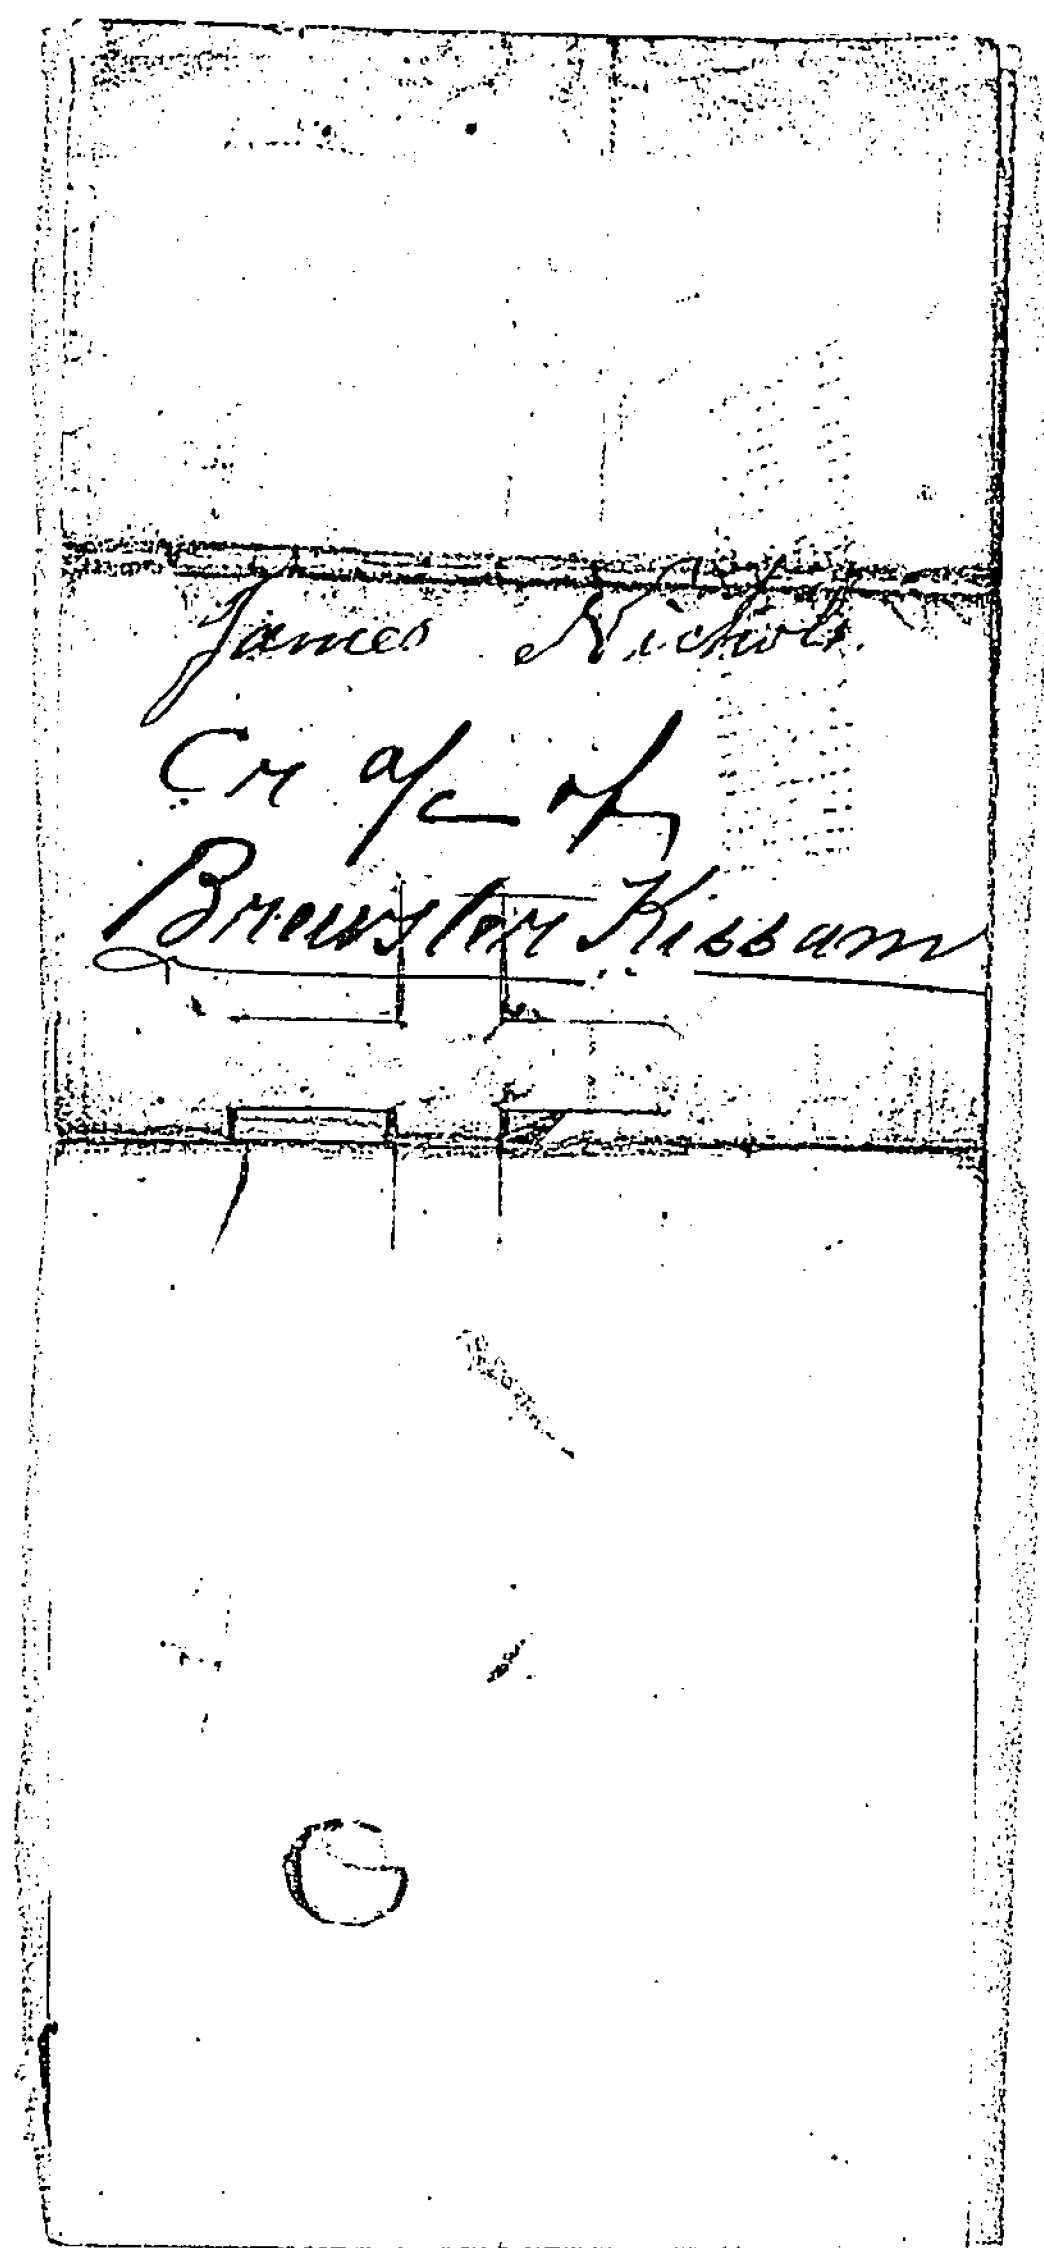 James Nichols.
Cr a/c of
Brewster Kissam